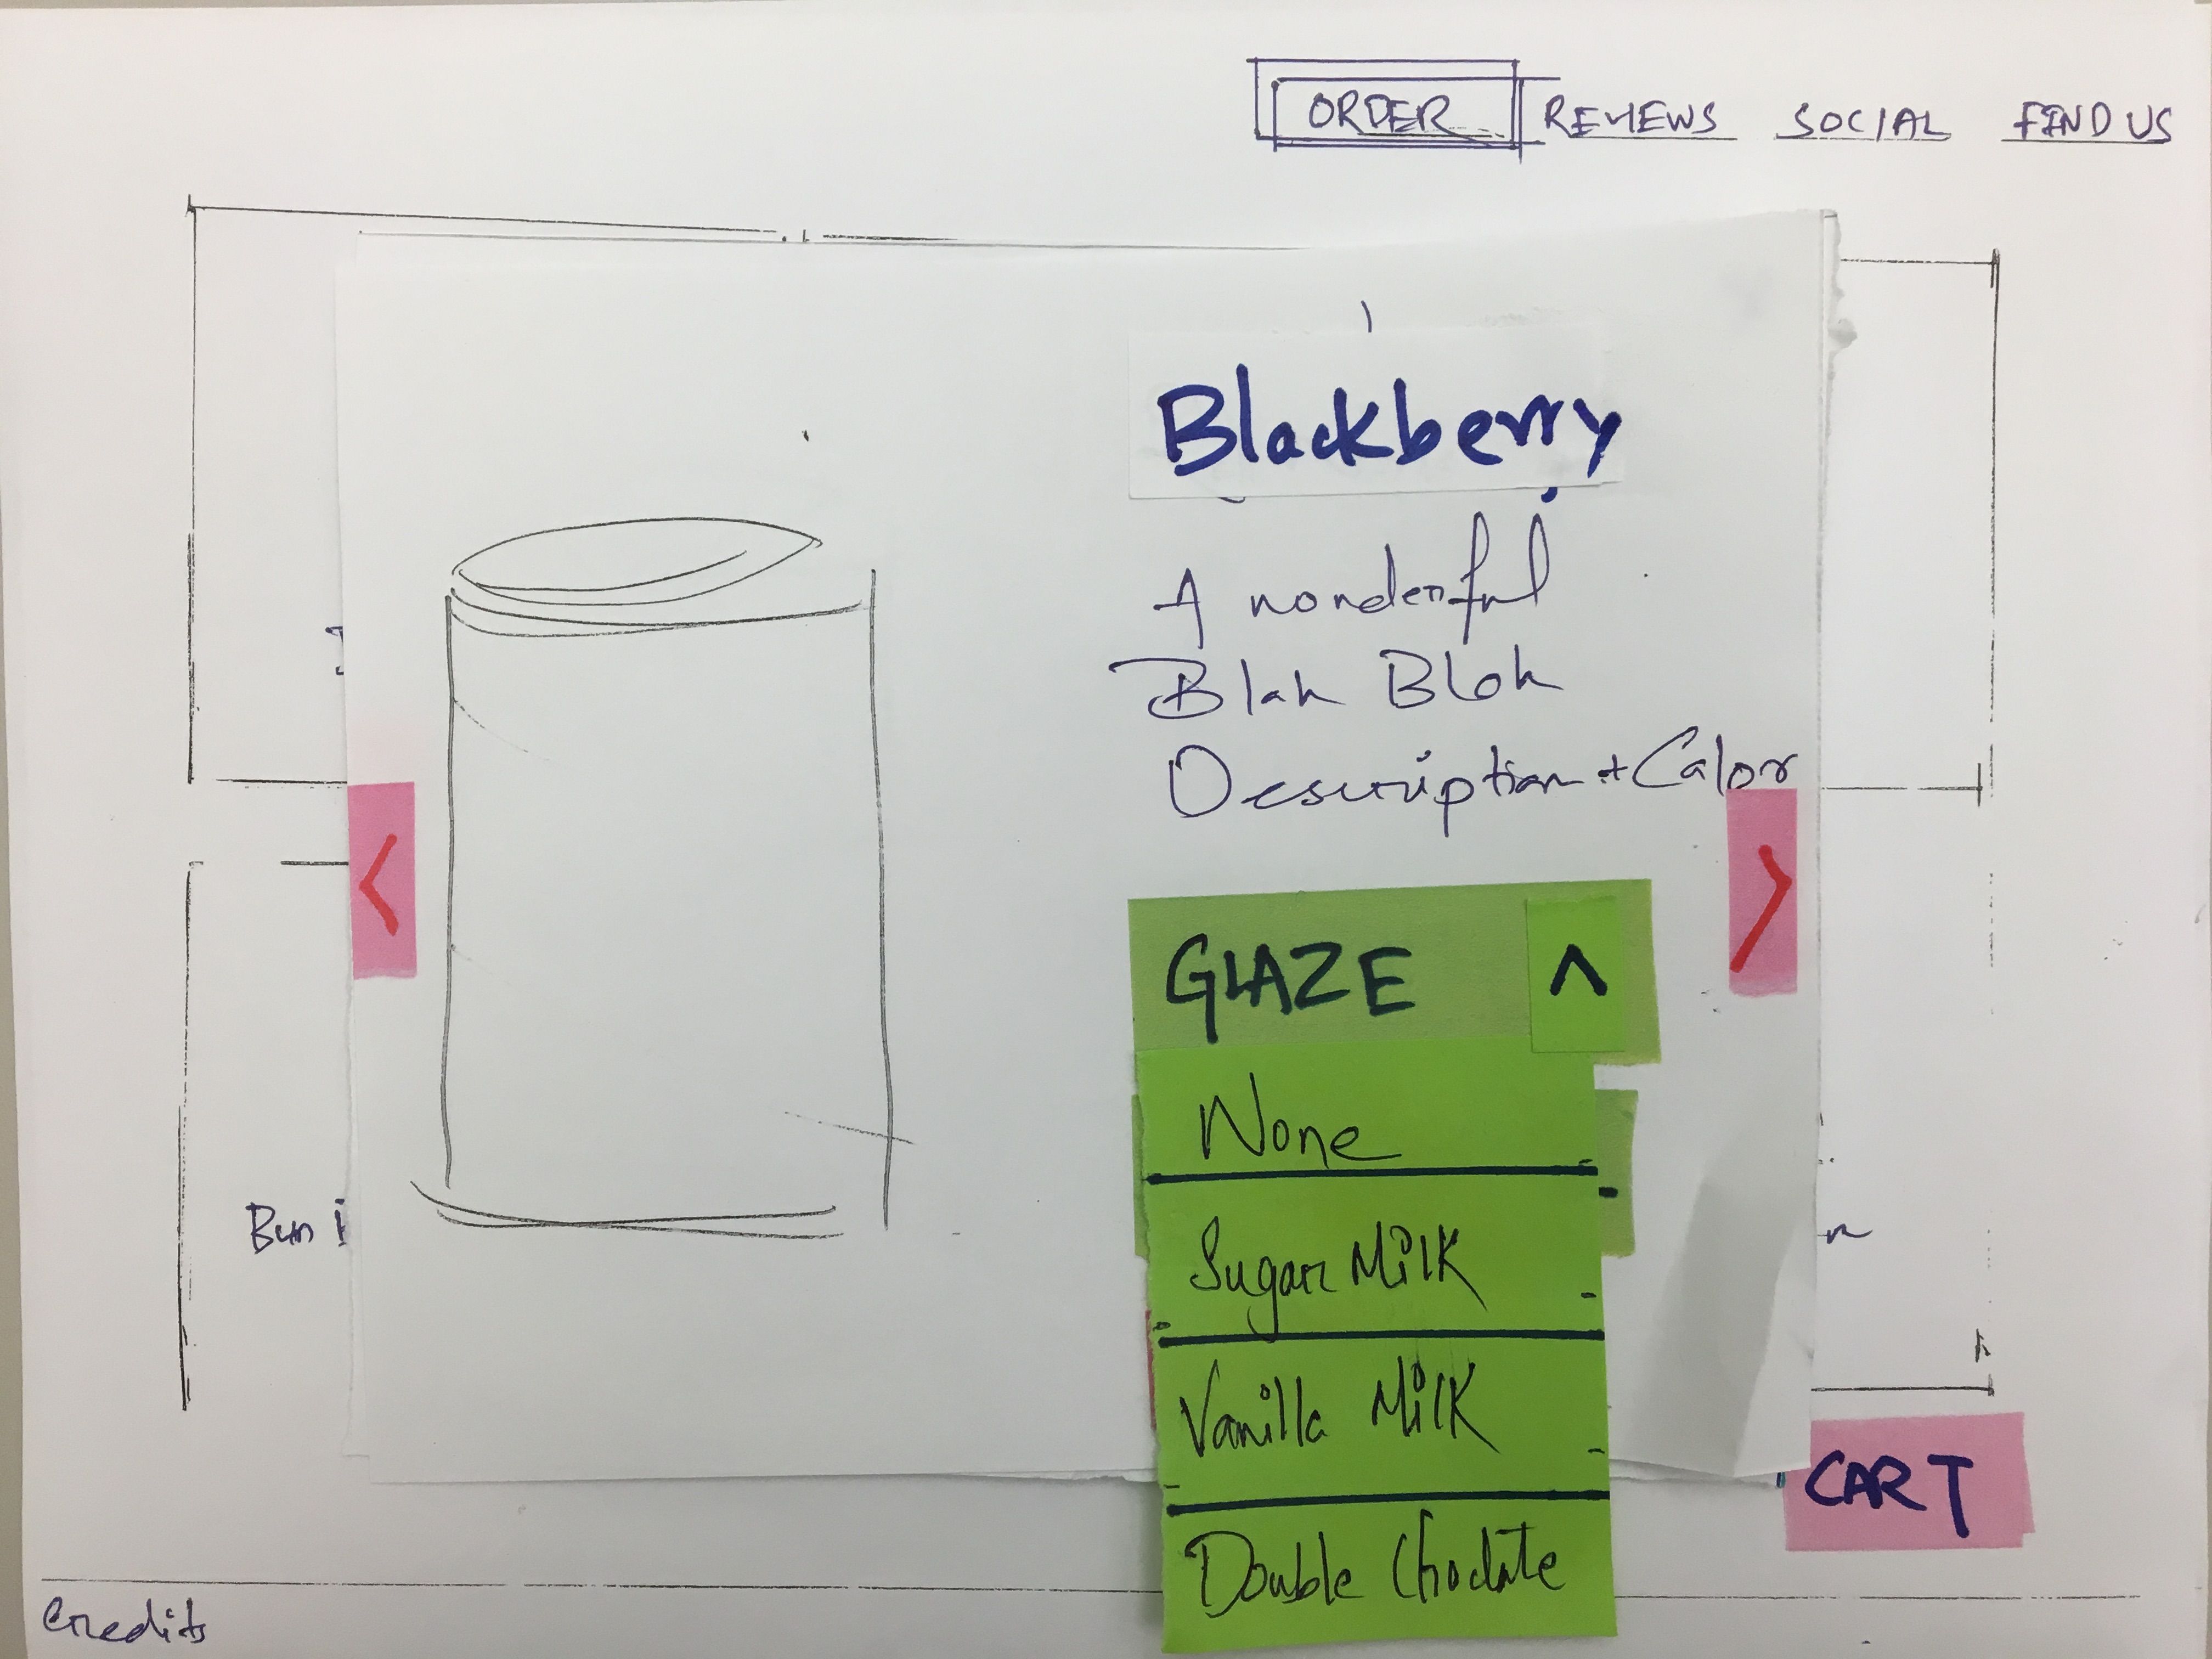 ORDER REVIEWS SOCIAL FIND US
Blackberry
A wonderful
Blah Blah
Description + Calor
<
>
GLAZE ^
None
Sugar Milk
Vanilla Milk
Double Choclate
Bun
CART
Credits